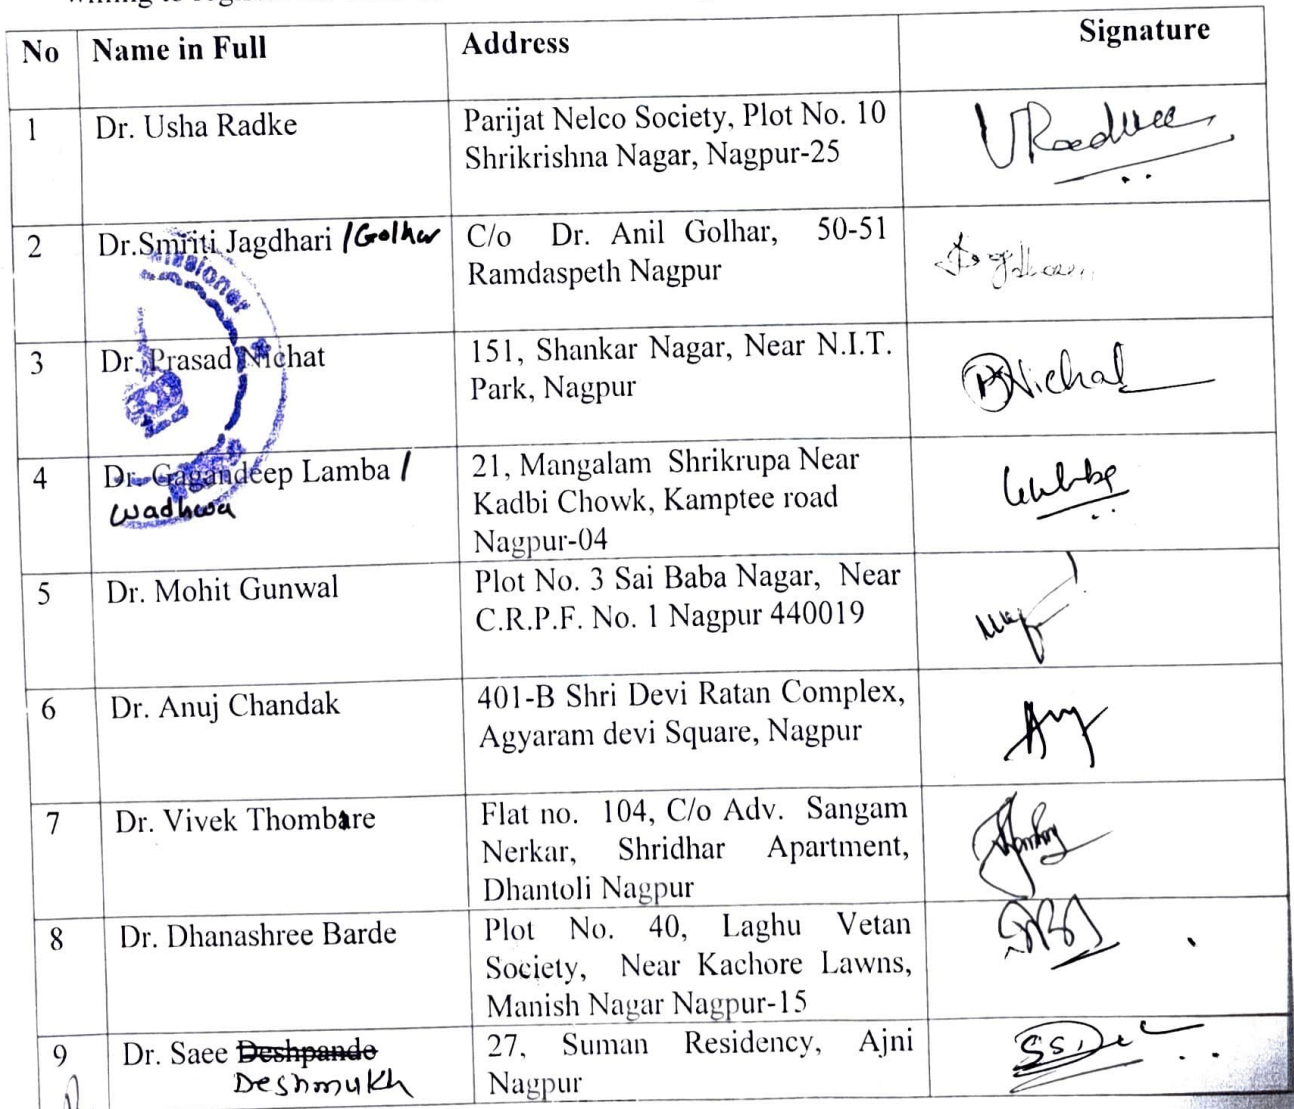 No Name in Full Address Signature
1 Dr. Usha Radke Parijat Nelco Society, Plot No. 10
Shrikrishna Nagar, Nagpur-25
2 Dr.Smriti Jagdhari /Golhar C/o Dr. Anil Golhar, 50-51
Ramdaspeth Nagpur
3 Dr. Prasad Nichat 151, Shankar Nagar, Near N.I.T.
Park, Nagpur
PNichat
4 Dr. Gagandeep Lamba / 21, Mangalam Shrikrupa Near
wadhwa Kadbi Chowk, Kamptee road
Nagpur-04
5 Dr. Mohit Gunwal Plot No. 3 Sai Baba Nagar, Near
C.R.P.F. No. 1 Nagpur 440019
6 Dr. Anuj Chandak 401-B Shri Devi Ratan Complex,
Agyaram devi Square, Nagpur
7 Dr. Vivek Thombare Flat no. 104, C/o Adv. Sangam
Nerkar, Shridhar Apartment,
Dhantoli Nagpur
8 Dr. Dhanashree Barde Plot No. 40, Laghu Vetan
Society, Near Kachore Lawns,
Manish Nagar Nagpur-15
9 Dr. Saee Deshpande 27, Suman Residency, Ajni
Deshmukh Nagpur